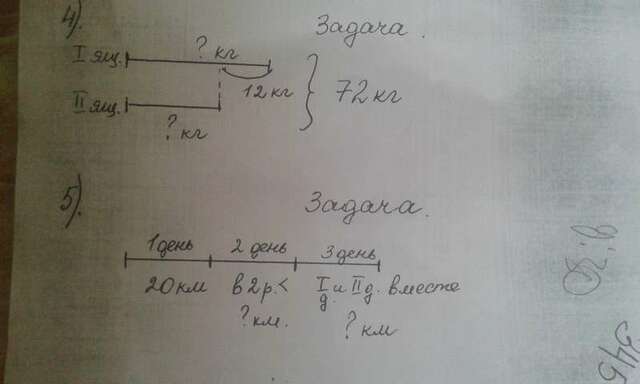 4). Задача.
I ящ. ? кг
12 кг
72 кг
II ящ.
? кг
5). Задача.
1 день 2 день 3 день
20 км в 2 р. < I д. и II д. вместе
? км. ? км